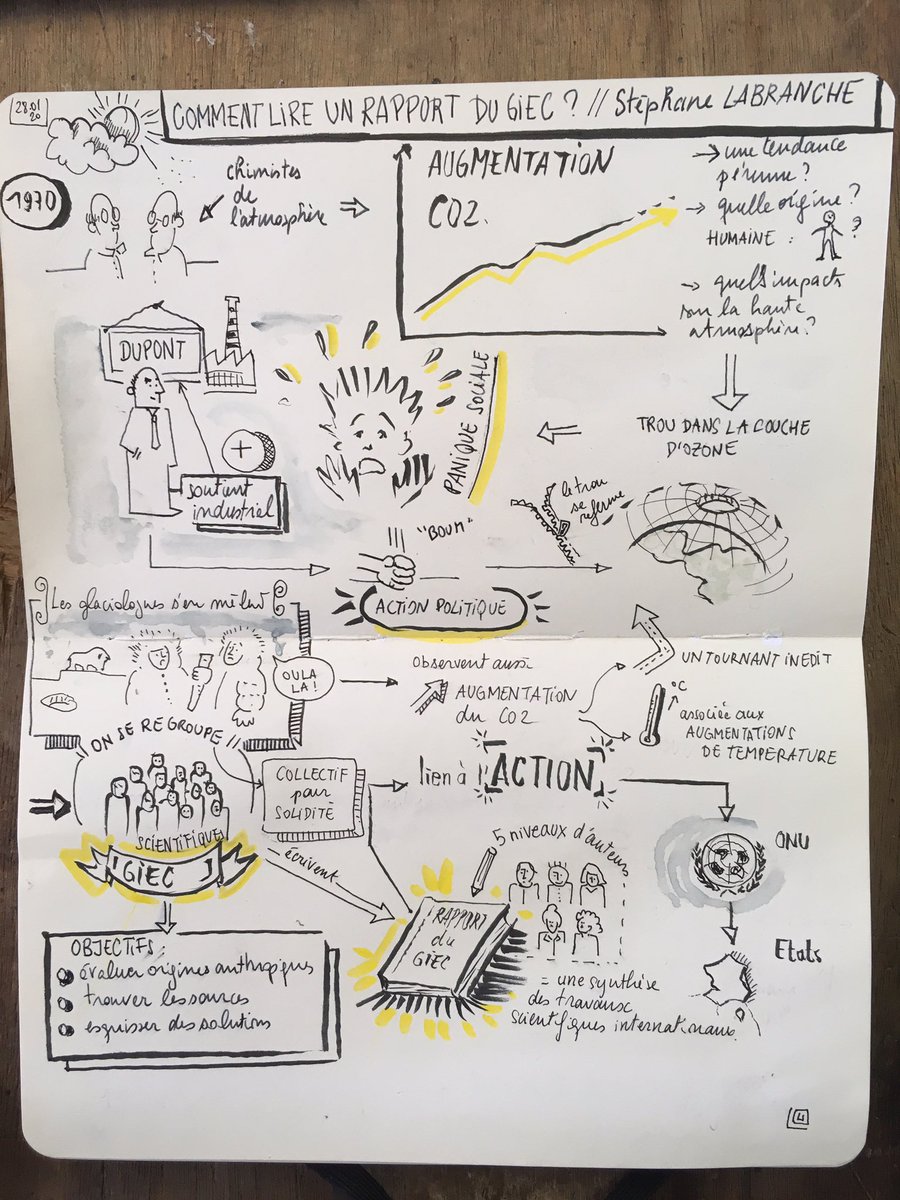 28.01
20
COMMENT LIRE UN RAPPORT DU GIEC ? // Stéphane LABRANCHE
1970
chimistes
de
l'atmosphère
AUGMENTATION
CO2.
→ une tendance
pérenne ?
→ quelle origine ?
HUMAINE : ?
→ quels impacts
sur la haute
atmosphère ?
TROU DANS LA COUCHE
D'OZONE
PANIQUE SOCIALE
DUPONT
+
soutient
industriel
"BOUM"
ACTION POLITIQUE
le trou
se referme
Les glaciologues s'en mêlent
OULA
LA !
observent aussi
AUGMENTATION
du CO2
UN TOURNANT INEDIT
°C
associée aux
AUGMENTATIONS
DE TEMPERATURE
ON SE REGROUPE !!
SCIENTIFIQUE
GIEC
COLLECTIF
pour
SOLIDITÉ
lien à ACTION
ONU
Etats
écrivent
5 niveaux d'auteurs
RAPPORT
du
GIEC
= une synthèse
des travaux
scientifiques internationaux.
OBJECTIFS :
évaluer origines anthropiques
trouver les sources
esquisser des solutions
4